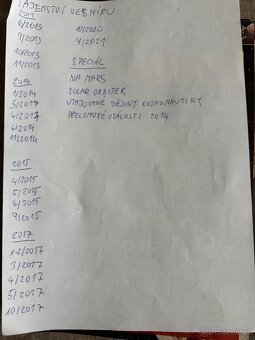 TAJEMSTVÍ VESMÍRU
2013
6/2013
9/2013
10/2013
11/2013
2014
1/2014
3/2014
4/2014
6/2014
11/2014
2015
4/2015
5/2015
6/2015
9/2015
2017
1-2/2017
3/2017
4/2017
5/2017
10/2017
10/2020
9/2021
SPECIÁL
NA MARS
SOLAR ORBITER
UTAJOVANÉ DĚJINY KOSMONAUTIKY
PŘELOMOVÉ UDÁLOSTI 2014